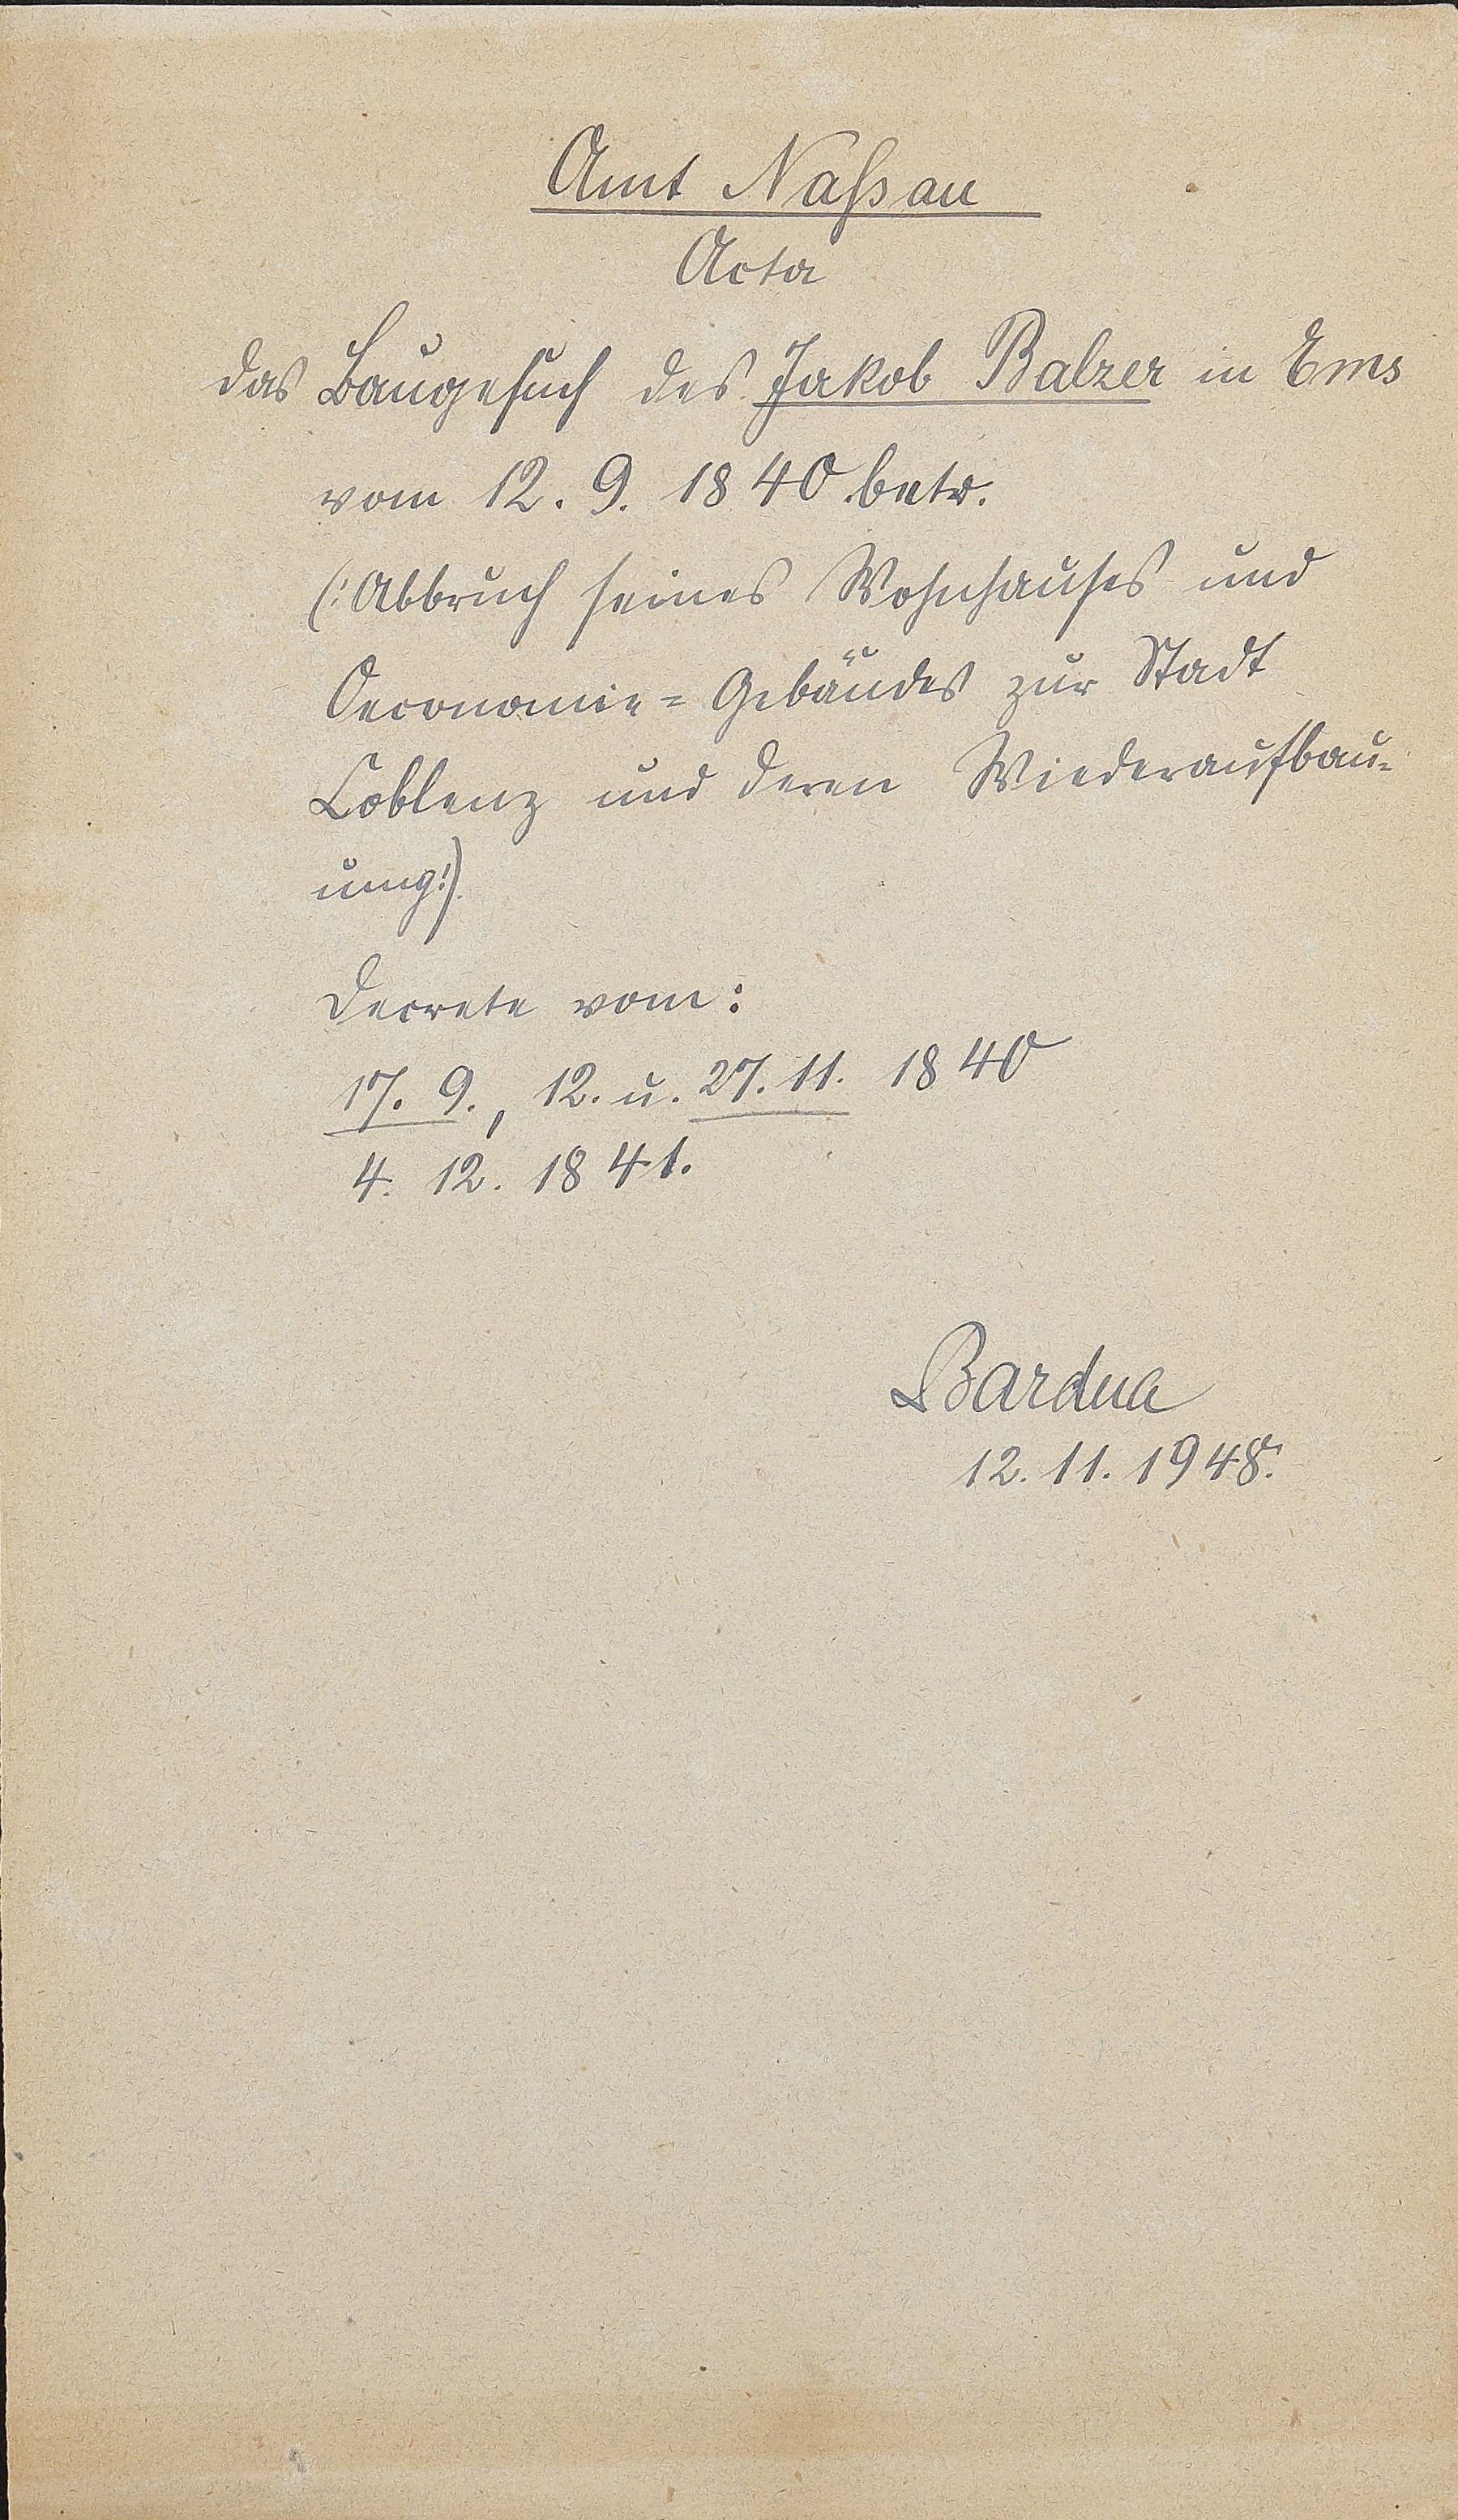 Amt Naßau
Acta
das Baugesuch des Jakob Balzer in Ems
vom 12. 9. 1840 betr.
(: Abbruch seines Wohnhauses und
Oeconomie= Gebäudes zur Stadt
Coblenz und deren Wiederaufbau=
ung:).
Decrete vom:
17. 9., 12. u. 27. 11. 1840
4. 12. 1841.
Bardua
12. 11. 1948.